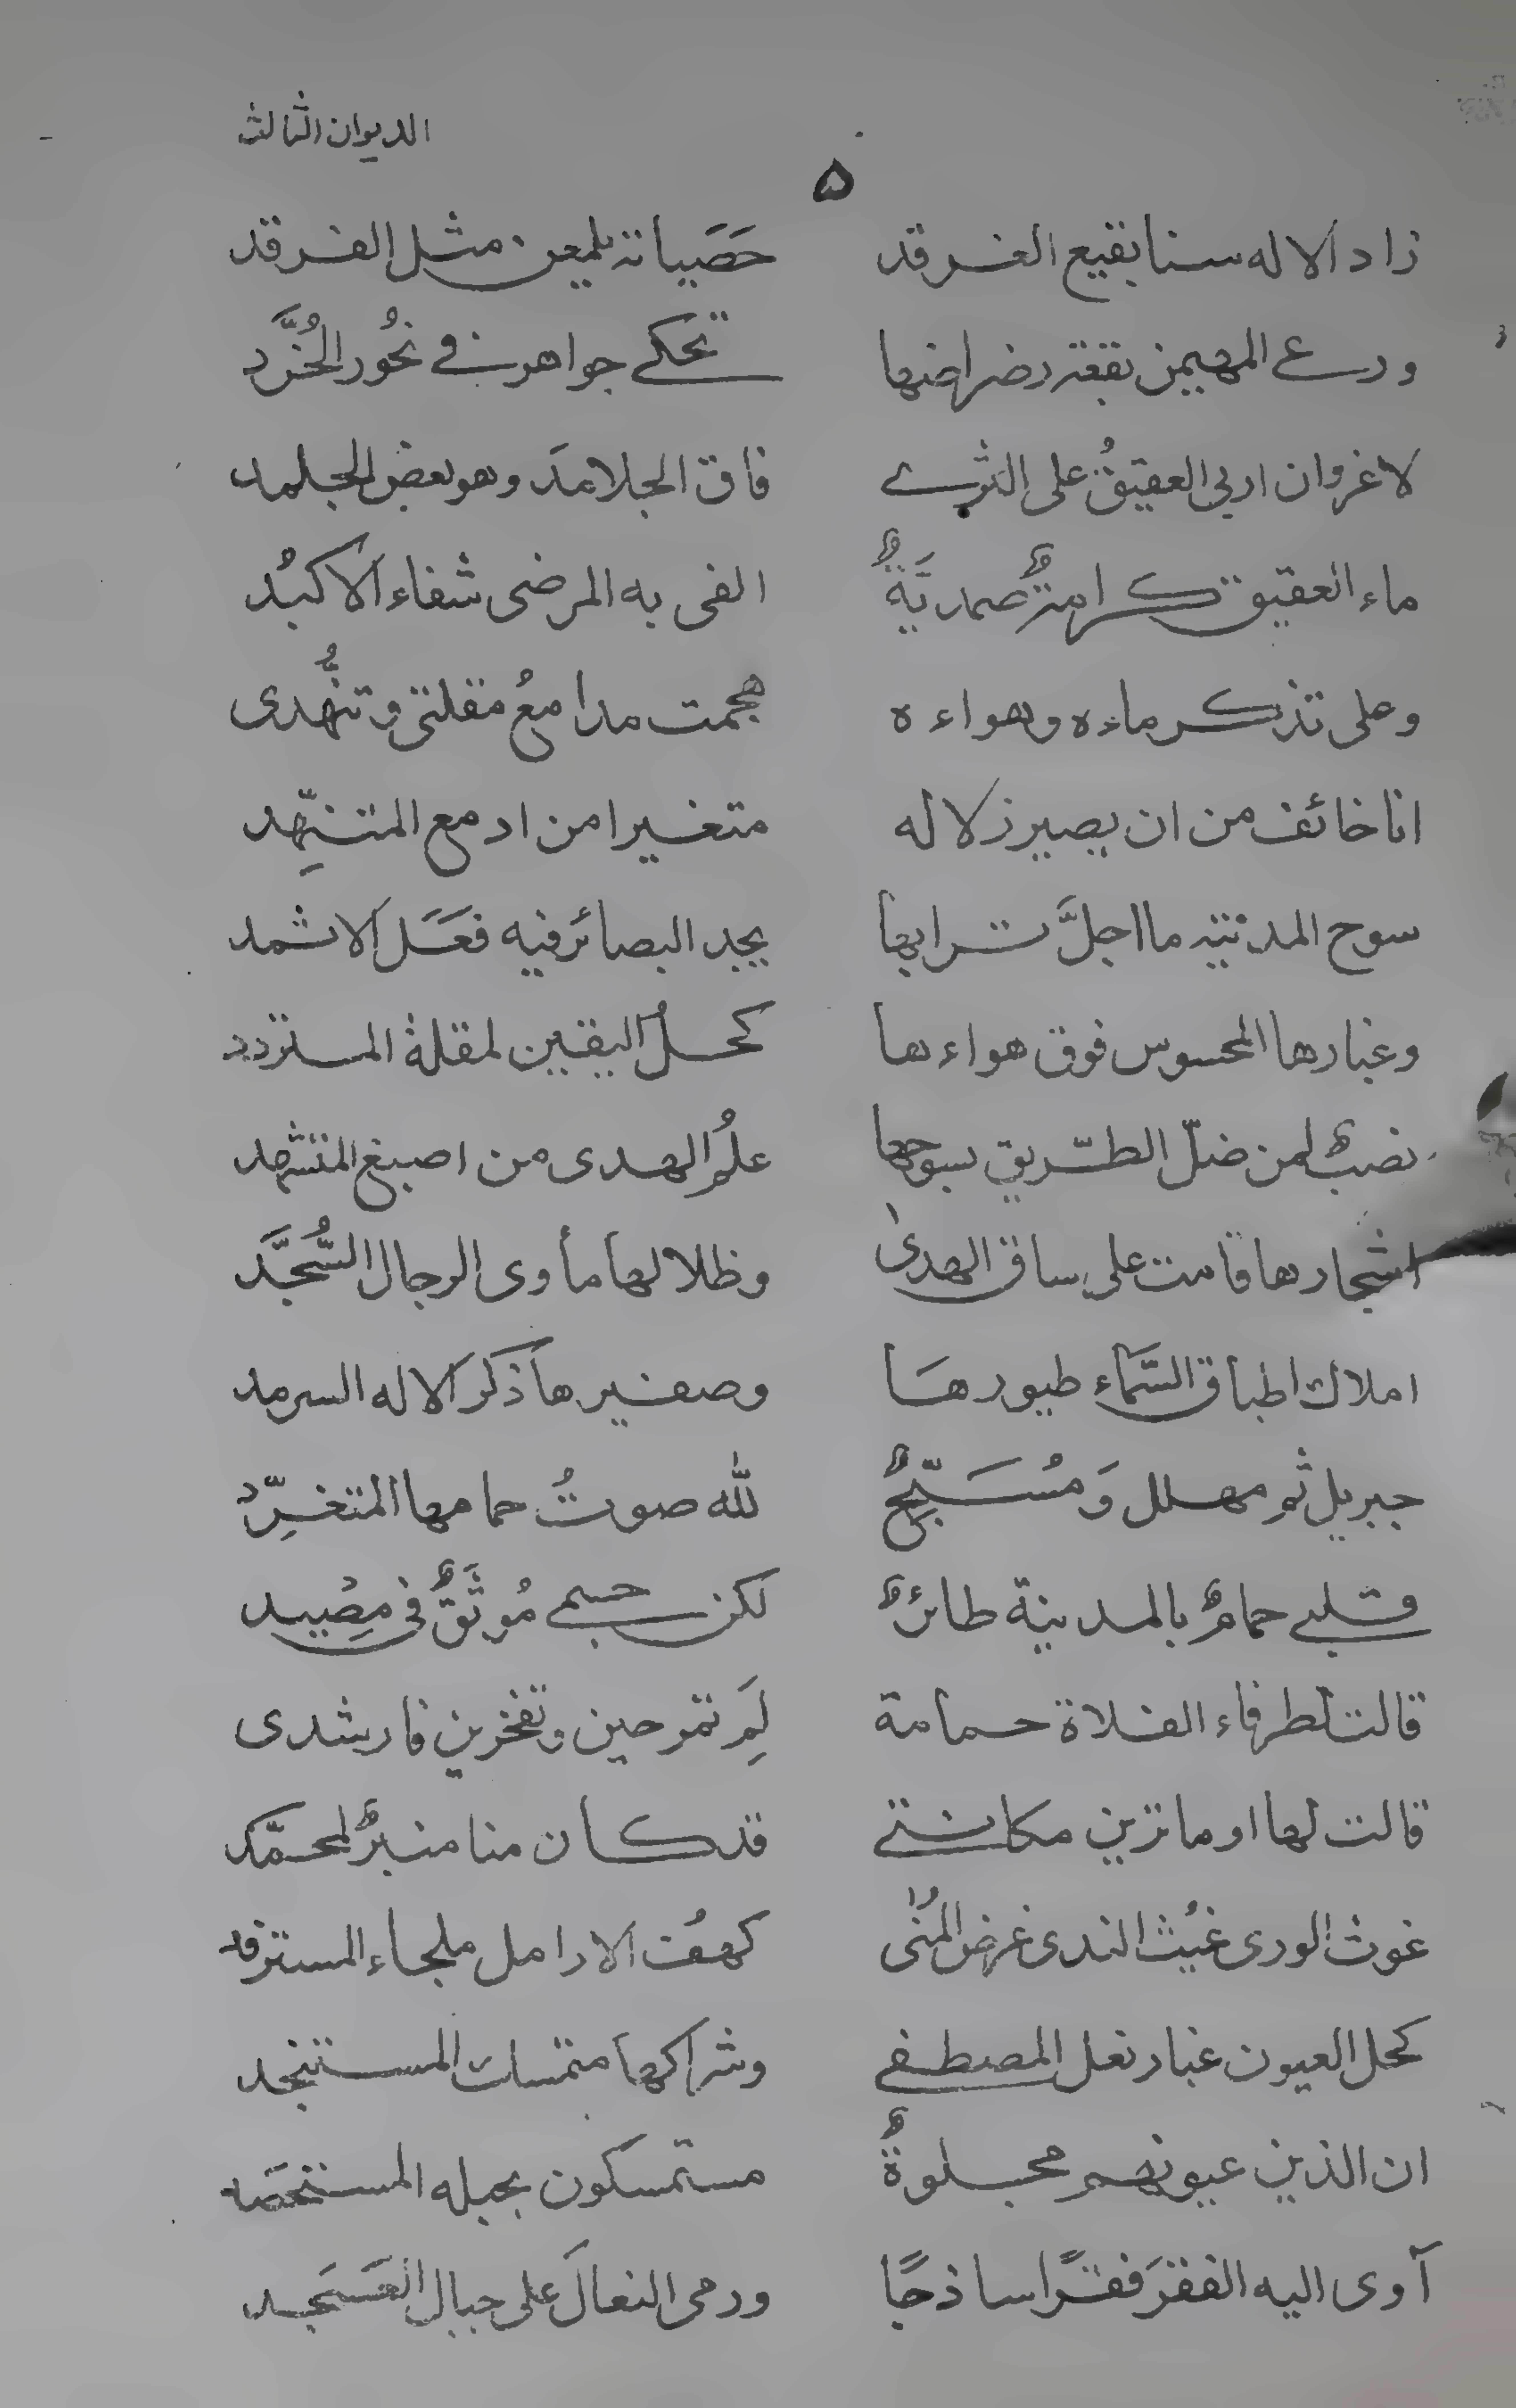 الديوان الثالث
٥
زاد الاله سنا بقيع الغرقد حَصَياته يلمعن مثل الفرقد
ورعى المهيمن بقعة رضراضها تحكي جواهر في نحُور الخُرَّد
لا غروان اربى العقيقُ على الثرى فاق الجلامدَ وهو بعض الجلمد
ماء العقيق كرامةٌ صمديَّةٌ الفى به المرضى شفاء الاكبُد
وعلى تذكر ماءه وهواءه هجمت مدامعُ مقلتى وتنهُّدى
انا خائف من ان يصير زلاله متغيرا من ادمع المتنهِّد
سوح المدينة ما اجلَّ ترابها يجد البصائر فيه فعَل الاثمد
وغبارها المحسوس فوق هواءها كحلُ اليقين لمقلة المتردد
نصبٌ لمن ضلّ الطّريق بسوحها علمُ الهدى من اصبع المتشهد
اشجارها قامت على ساق الهدىٰ وظلالها مأوى الرجال السُّجَّد
املاك اطباق السَّماء طيورها وصفيرها ذكر الاله السرمد
جبريل ثم مهلل وَمُسَبِّحٌ لله صوتُ حمامها المتغرِّد
قلبي حمامٌ بالمدينة طائرٌ لكن جسمي مُوثَقٌ في مِصْيد
قالت لطرفاء الفلاة حمامة لِمَ تمرحين وتفخرين فارشدى
قالت لها اوما ترين مكانتي قد كان منا منبرٌ لمحمّد
غوث الورى غيث الندى غرض المُنٰى كهفُ الارامل ملجاء المسترفد
كحل العيون غبار نعل المصطفي وشراكها متمسك المستنجد
ان الذين عيونهم مجلوةٌ مستمسكون بحبله المستحصَد
آوى اليه الفقرَ فقرًا ساذجًا ورمى النعالَ على جبال العَسْجَد